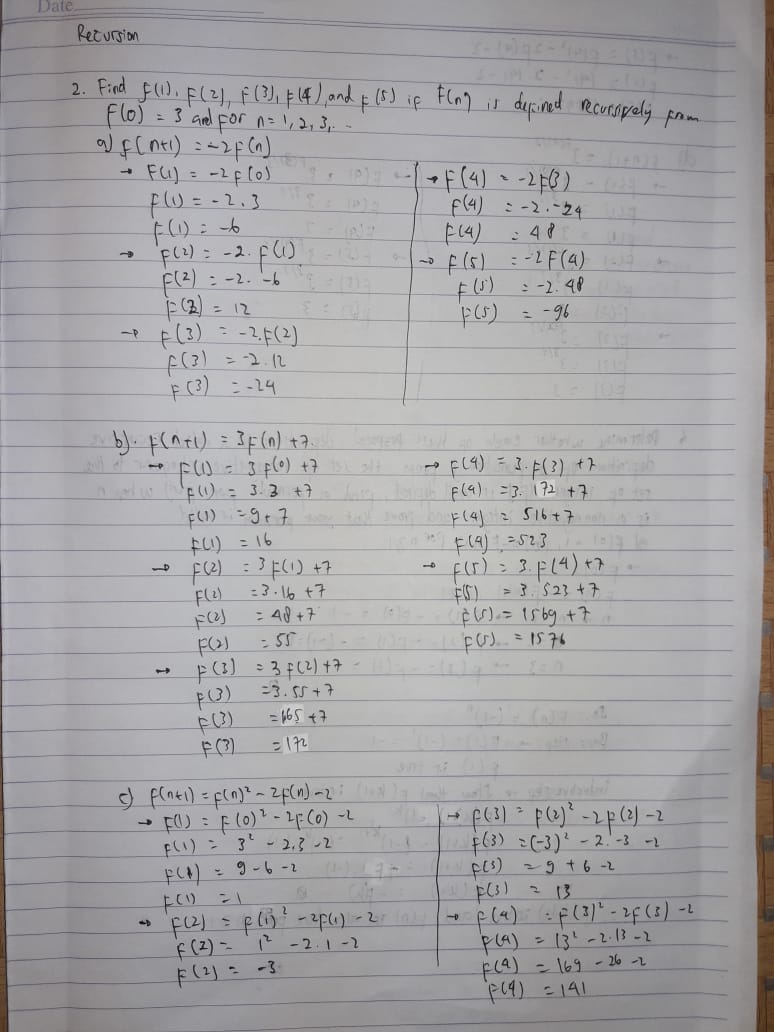 Date
Recursion
2. Find f(1), F(2), F(3), F(4), and F(5) if F(n) is defined recursively from
F(0) = 3 and for n = 1, 2, 3, ..
a) f(n+1) = -2f(n)
→ F(1) = -2f(0)
f(1) = -2.3
f(1) = -6
→ F(2) = -2. F(1)
F(2) = -2. -6
F(2) = 12
→ F(3) = -2.F(2)
F(3) = -2.12
F(3) = -24
→ F(4) = -2F(3)
F(4) = -2.-24
F(4) = 48
→ F(5) = -2F(4)
F(5) = -2.48
F(5) = -96
b). F(n+1) = 3F(n) +7
→ F(1) = 3f(0) +7
F(1) = 3.3 +7
F(1) = 9+7
F(1) = 16
→ F(2) = 3F(1) +7
F(2) = 3.16 +7
F(2) = 48+7
F(2) = 55
→ F(3) = 3f(2)+7
F(3) = 3.55+7
F(3) = 165 +7
F(3) = 172
→ F(4) = 3.F(3) +7
F(4) = 3. 172 +7
F(4) = 516+7
F(4) = 523
→ F(5) = 3.F(4)+7
F(5) = 3.523+7
F(5) = 1569 +7
F(5) = 1576
c) f(n+1) = f(n)² - 2f(n) - 2
→ F(1) = F(0)² - 2F(0) -2
F(1) = 3² - 2.3 -2
F(1) = 9-6-2
F(1) = 1
→ F(2) = F(1)² - 2F(1) - 2
F(2) = 1² - 2.1 -2
F(2) = -3
→ F(3) = F(2)² - 2F(2) -2
F(3) = (-3)² - 2. -3 -2
F(3) = 9 + 6 -2
F(3) = 13
→ F(4) = F(3)² - 2F(3) -2
F(4) = 13² - 2.13 -2
F(4) = 169 - 26 -2
F(4) = 141